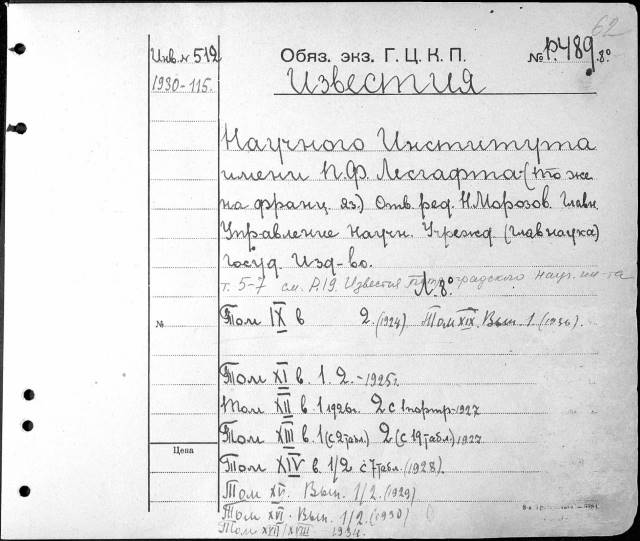 62
Инв. № 512 Обяз. экз. Г. Ц. К. П. № Р.489 8°
1930-115. Известия
Научного Института
имени П.Ф. Лесгафта (то же
на франц. яз.) Отв. ред. Н. Морозов. Главн.
Управление Научн. Учрежд. (Главнаука)
Госуд. Изд-во.
т. 5-7 см. Р.19. Известия Петроградского науч. ин-та
Л. 8°
№ Том IX в 2. (1924) Том XIX. Вып. 1.
Том XI в. 1. 2. - 1925г.
Том XII в. 1 1926г. 2 с 1 портр. 1927
Том XIII в. 1 (с 2 табл.) 2 (с 19 табл.) 1927
Цена
Том XIV в. 1/2 с 7 табл. (1928).
Том XV. Вып. 1/2. (1929)
Том XVI. Вып. 1/2. (1930)
Том XVII/XVIII 1934.